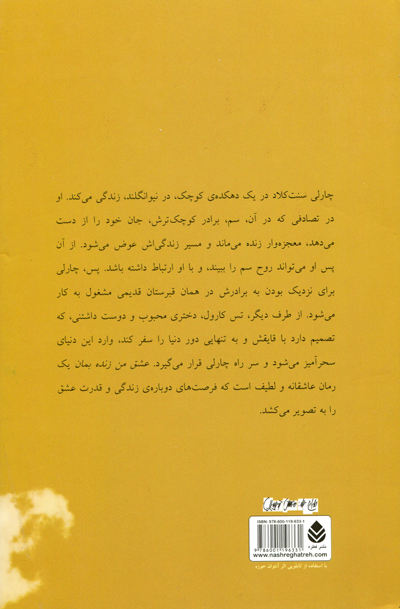 چارلی سنت‌کلاد در یک دهکده‌ی کوچک، در نیوانگلند، زندگی می‌کند. او
در تصادفی که در آن، سم، برادر کوچک‌ترش، جان خود را از دست
می‌دهد، معجزه‌وار زنده می‌ماند و مسیر زندگی‌اش عوض می‌شود. از آن
پس او می‌تواند روح سم را ببیند، و با او ارتباط داشته باشد. پس، چارلی
برای نزدیک بودن به برادرش در همان قبرستان قدیمی مشغول به کار
می‌شود. از طرف دیگر، تس کارول، دختری محبوب و دوست داشتنی، که
تصمیم دارد با قایقش و به تنهایی دور دنیا را سفر کند، وارد این دنیای
سحرآمیز می‌شود و سر راه چارلی قرار می‌گیرد. عشق من زنده بمان یک
رمان عاشقانه و لطیف است که فرصت‌های دوباره‌ی زندگی و قدرت عشق
را به تصویر می‌کشد.
ISBN: 978-600-119-633-1
9786001196331
نشر قطره
www.nashreghatreh.com
با استفاده از تابلویی اثر آنتوان حوزه